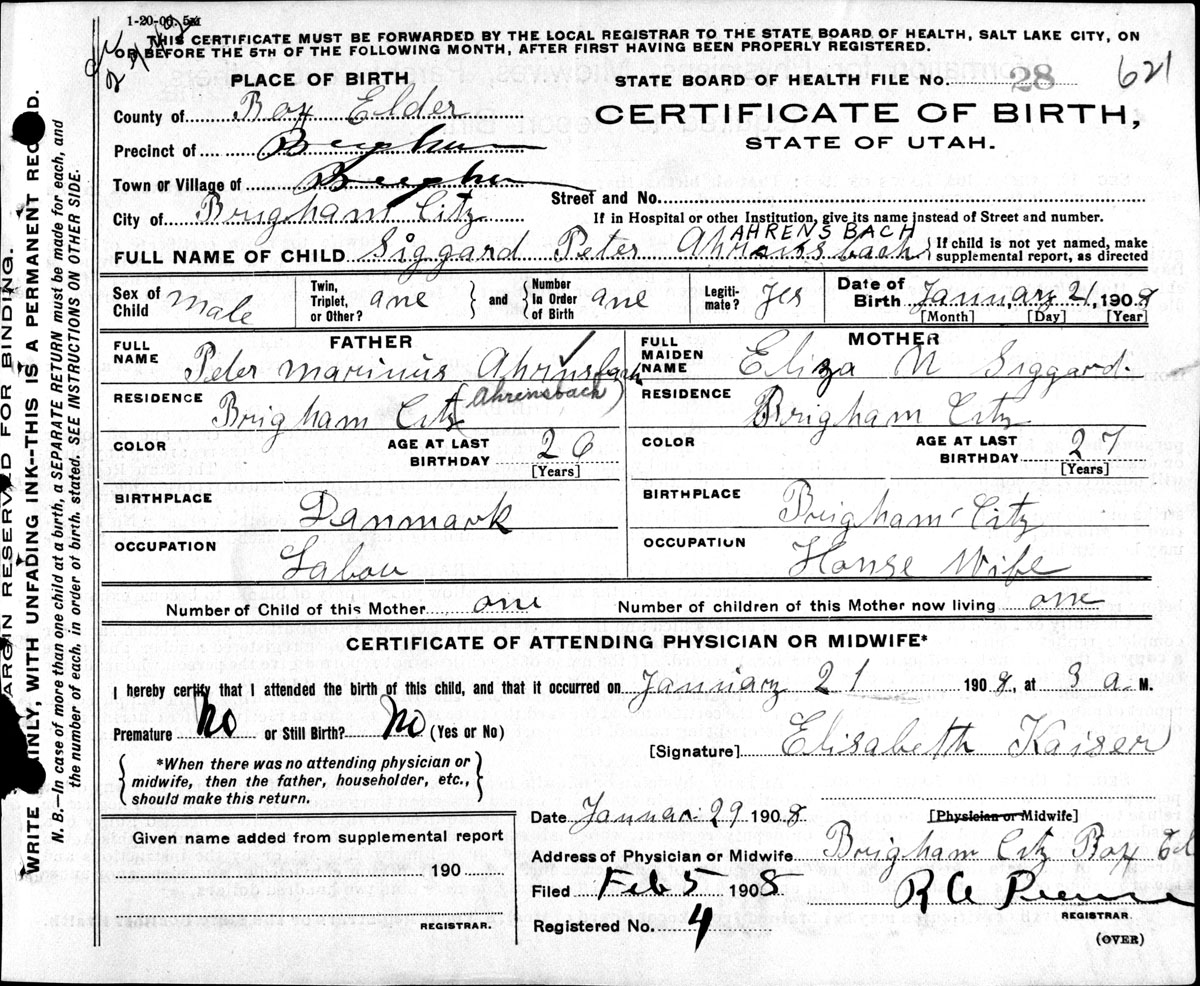 1-20-06. 5M
THIS CERTIFICATE MUST BE FORWARDED BY THE LOCAL REGISTRAR TO THE STATE BOARD OF HEALTH, SALT LAKE CITY, ON
OR BEFORE THE 5TH OF THE FOLLOWING MONTH, AFTER FIRST HAVING BEEN PROPERLY REGISTERED.
PLACE OF BIRTH
STATE BOARD OF HEALTH FILE No. 28 621
County of Box Elder
CERTIFICATE OF BIRTH,
STATE OF UTAH.
Precinct of Brigham
Town or Village of Brigham
Street and No.
City of Brigham City
If in Hospital or other Institution, give its name instead of Street and number.
AHRENSBACH
FULL NAME OF CHILD Siggard Peter Ahrensbach {If child is not yet named, make supplemental report, as directed
Sex of Child Male
Twin, Triplet, or Other? one } and { Number In Order of Birth one
Legiti-mate? Yes
Date of Birth January 21, 1908
[Month] [Day] [Year]
FATHER
FULL NAME Peter Marinius Ahrinsbach
(Ahrensbach)
RESIDENCE Brigham City
COLOR
AGE AT LAST BIRTHDAY 26
[Years]
BIRTHPLACE Danmark
OCCUPATION Labou
MOTHER
FULL MAIDEN NAME Eliza N Siggard.
RESIDENCE Brigham City
COLOR
AGE AT LAST BIRTHDAY 27
[Years]
BIRTHPLACE Brigham City
OCCUPATION House Wife
Number of Child of this Mother one Number of children of this Mother now living one
CERTIFICATE OF ATTENDING PHYSICIAN OR MIDWIFE*
I hereby certify that I attended the birth of this child, and that it occurred on January 21 1908, at 3 a. M.
Premature No or Still Birth? No (Yes or No)
[Signature] Elisabeth Kaiser
{*When there was no attending physician or
midwife, then the father, householder, etc.,
should make this return.}
Date Januar. 29 1908
[Physician or Midwife]
Given name added from supplemental report
190
REGISTRAR.
Address of Physician or Midwife Brigham City Box El
Filed Feb 5 1908
REGISTRAR.
Registered No. 4
(OVER)
MARGIN RESERVED FOR BINDING.
WRITE PLAINLY, WITH UNFADING INK--THIS IS A PERMANENT RECORD.
N. B.—In case of more than one child at a birth, a SEPARATE RETURN must be made for each, and
the number of each, in order of birth, stated. SEE INSTRUCTIONS ON OTHER SIDE.